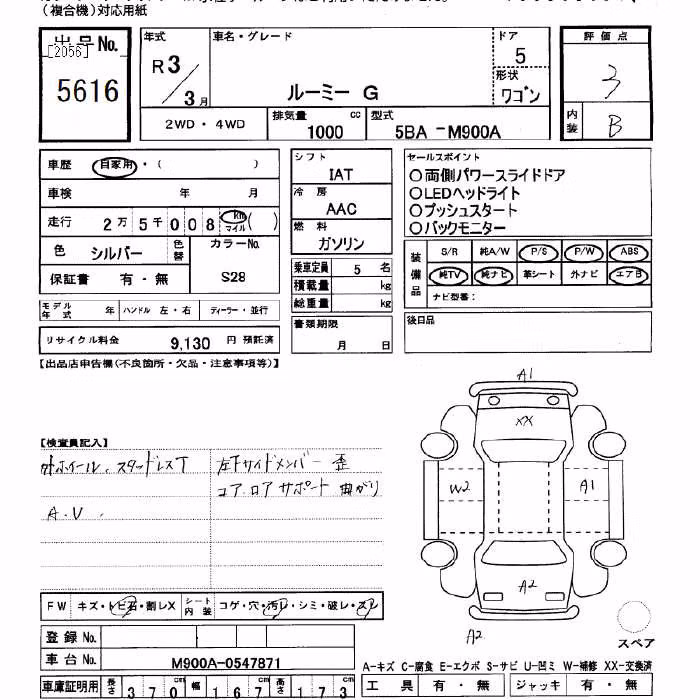 （複合機）対応用紙
出品No.
[2056]
5616
年式
R3
3月
車名・グレード
ルーミー G
ドア
5
形状
ワゴン
評価点
3
内装
B
2WD・4WD
排気量
1000 cc
型式
5BA -M900A
車歴
自家用・（ ）
車検 年 月
走行 2万5千008 km マイル ( )
色 シルバー 色替
カラーNo.
S28
保証書 有・無
モデル年式 年
ハンドル 左・右
ディーラー・並行
リサイクル料金 9,130 円 預託済
シフト
IAT
冷房
AAC
燃料
ガソリン
乗車定員 5 名
積載量 kg
総重量 kg
書類期限
月 日
セールスポイント
○両側パワースライドドア
○LEDヘッドライト
○プッシュスタート
○バックモニター
装備品
S/R 純A/W P/S P/W ABS
純TV 純ナビ 革シート 外ナビ エアB
ナビ型番：
後日品
【出品店申告欄（不良箇所・欠品・注意事項等）】
【検査員記入】
外ホイール、スタッドレスT
A.V.
左下サイドメンバー 歪
コア、ロアサポート 曲がり
A1
XX
W2
A1
A2
A2
スペア
FW キズ・トビ石・割レX
シート内装 コゲ・穴・汚レ・シミ・破レ・スレ
登録No.
車台No. M900A-0547871
車庫証明用 長さ 370cm 幅 167cm 高さ 173cm
A-キズ C-腐食 E-エクボ S-サビ U-凹ミ W-補修 XX-交換済
工具 有・無 ジャッキ 有・無